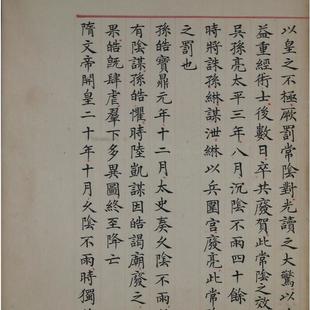 以皇之不極厥罰常陰對光讀之大驚以
益重經術士後數日卒共廢賀此常陰之效
吳孫亮太平三年八月沉陰不雨四十餘
時將誅孫綝謀泄綝以兵圍宮廢亮此常
之罰也
孫皓寶鼎元年十二月太史奏久陰不雨
有陰謀孫皓懼時陸凱謀因皓謁廟廢之
果皓旣肆虐羣下多異圖終至降亡
隋文帝開皇二十年十月久陰不雨時獨